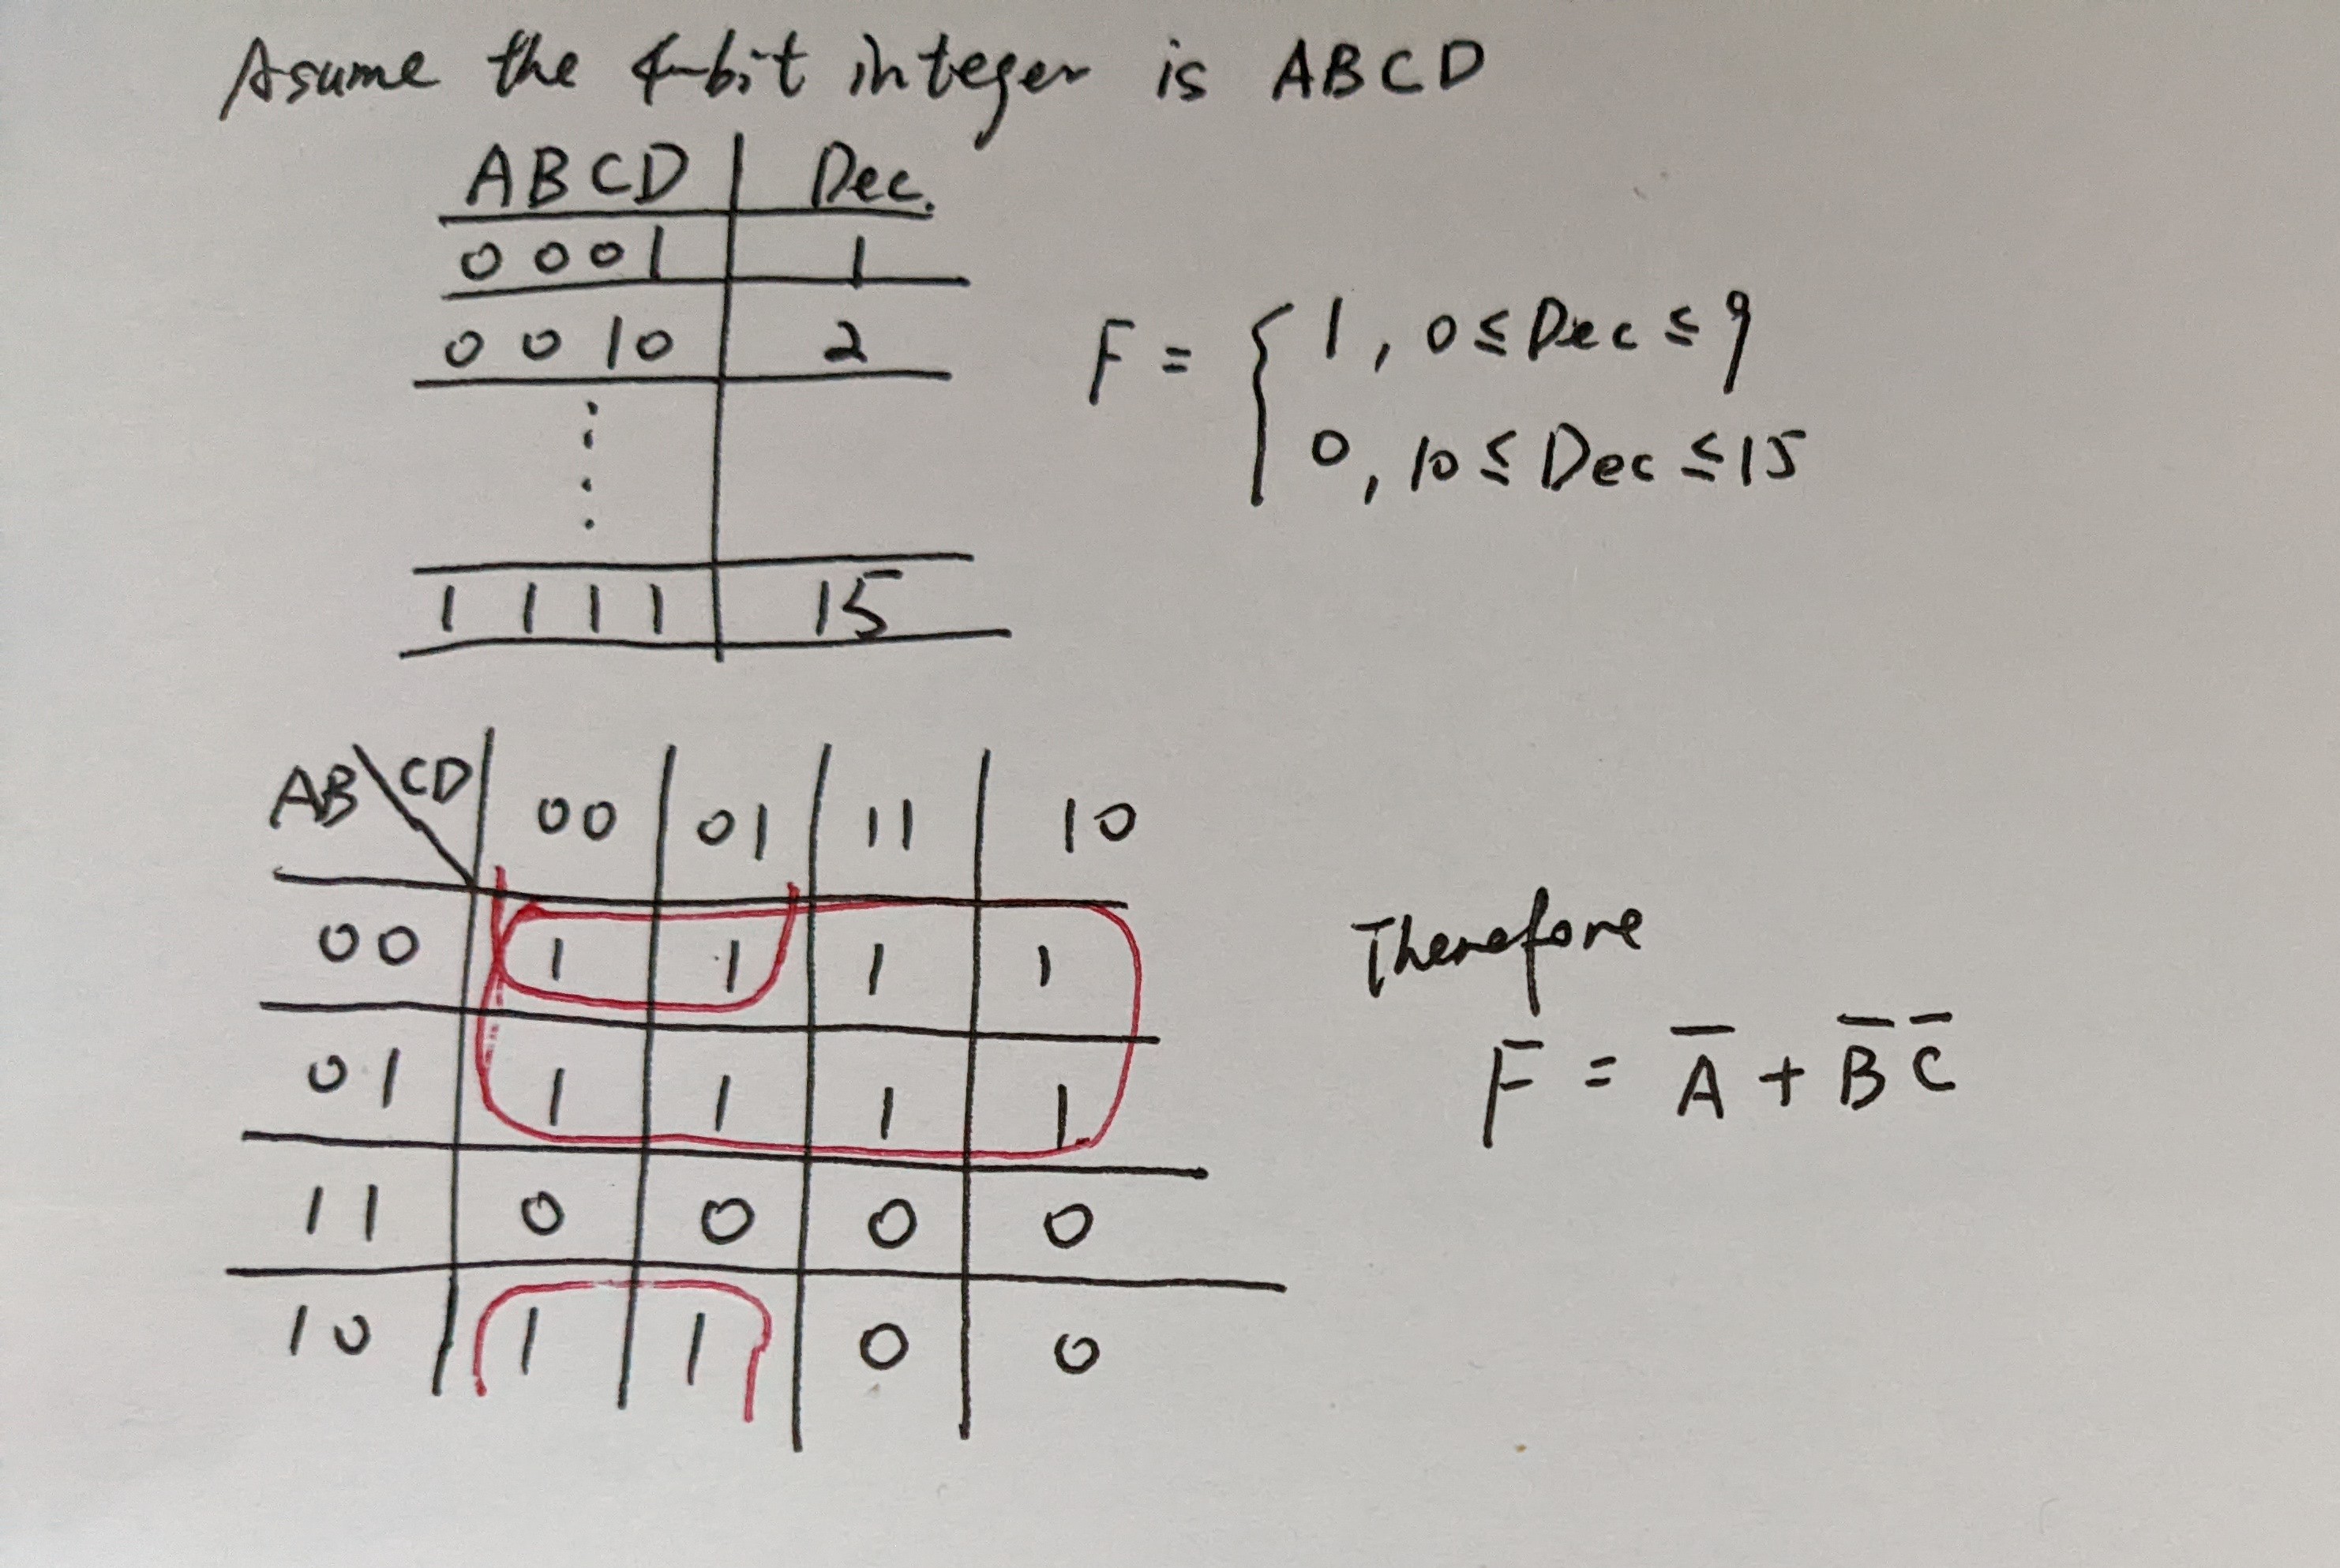 Asume the 4-bit integer is ABCD
ABCD Dec.
0001 1
0010 2
1111 15
F = { 1, 0 ≤ Dec ≤ 9
0, 10 ≤ Dec ≤ 15
AB\CD 00 01 11 10
00 1 1 1 1
01 1 1 1 1
11 0 0 0 0
10 1 1 0 0
Therefore
F = A̅ + B̅ C̅